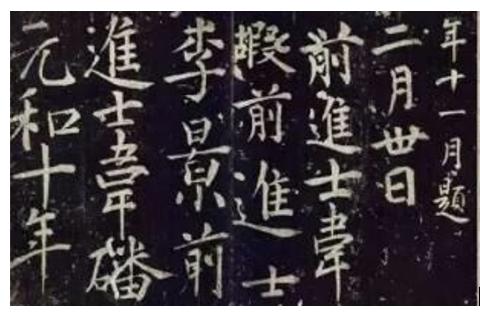 年十一月題
二月卅日
前進士韋
嘏前進士
李景前
進士韋磻
元和十年